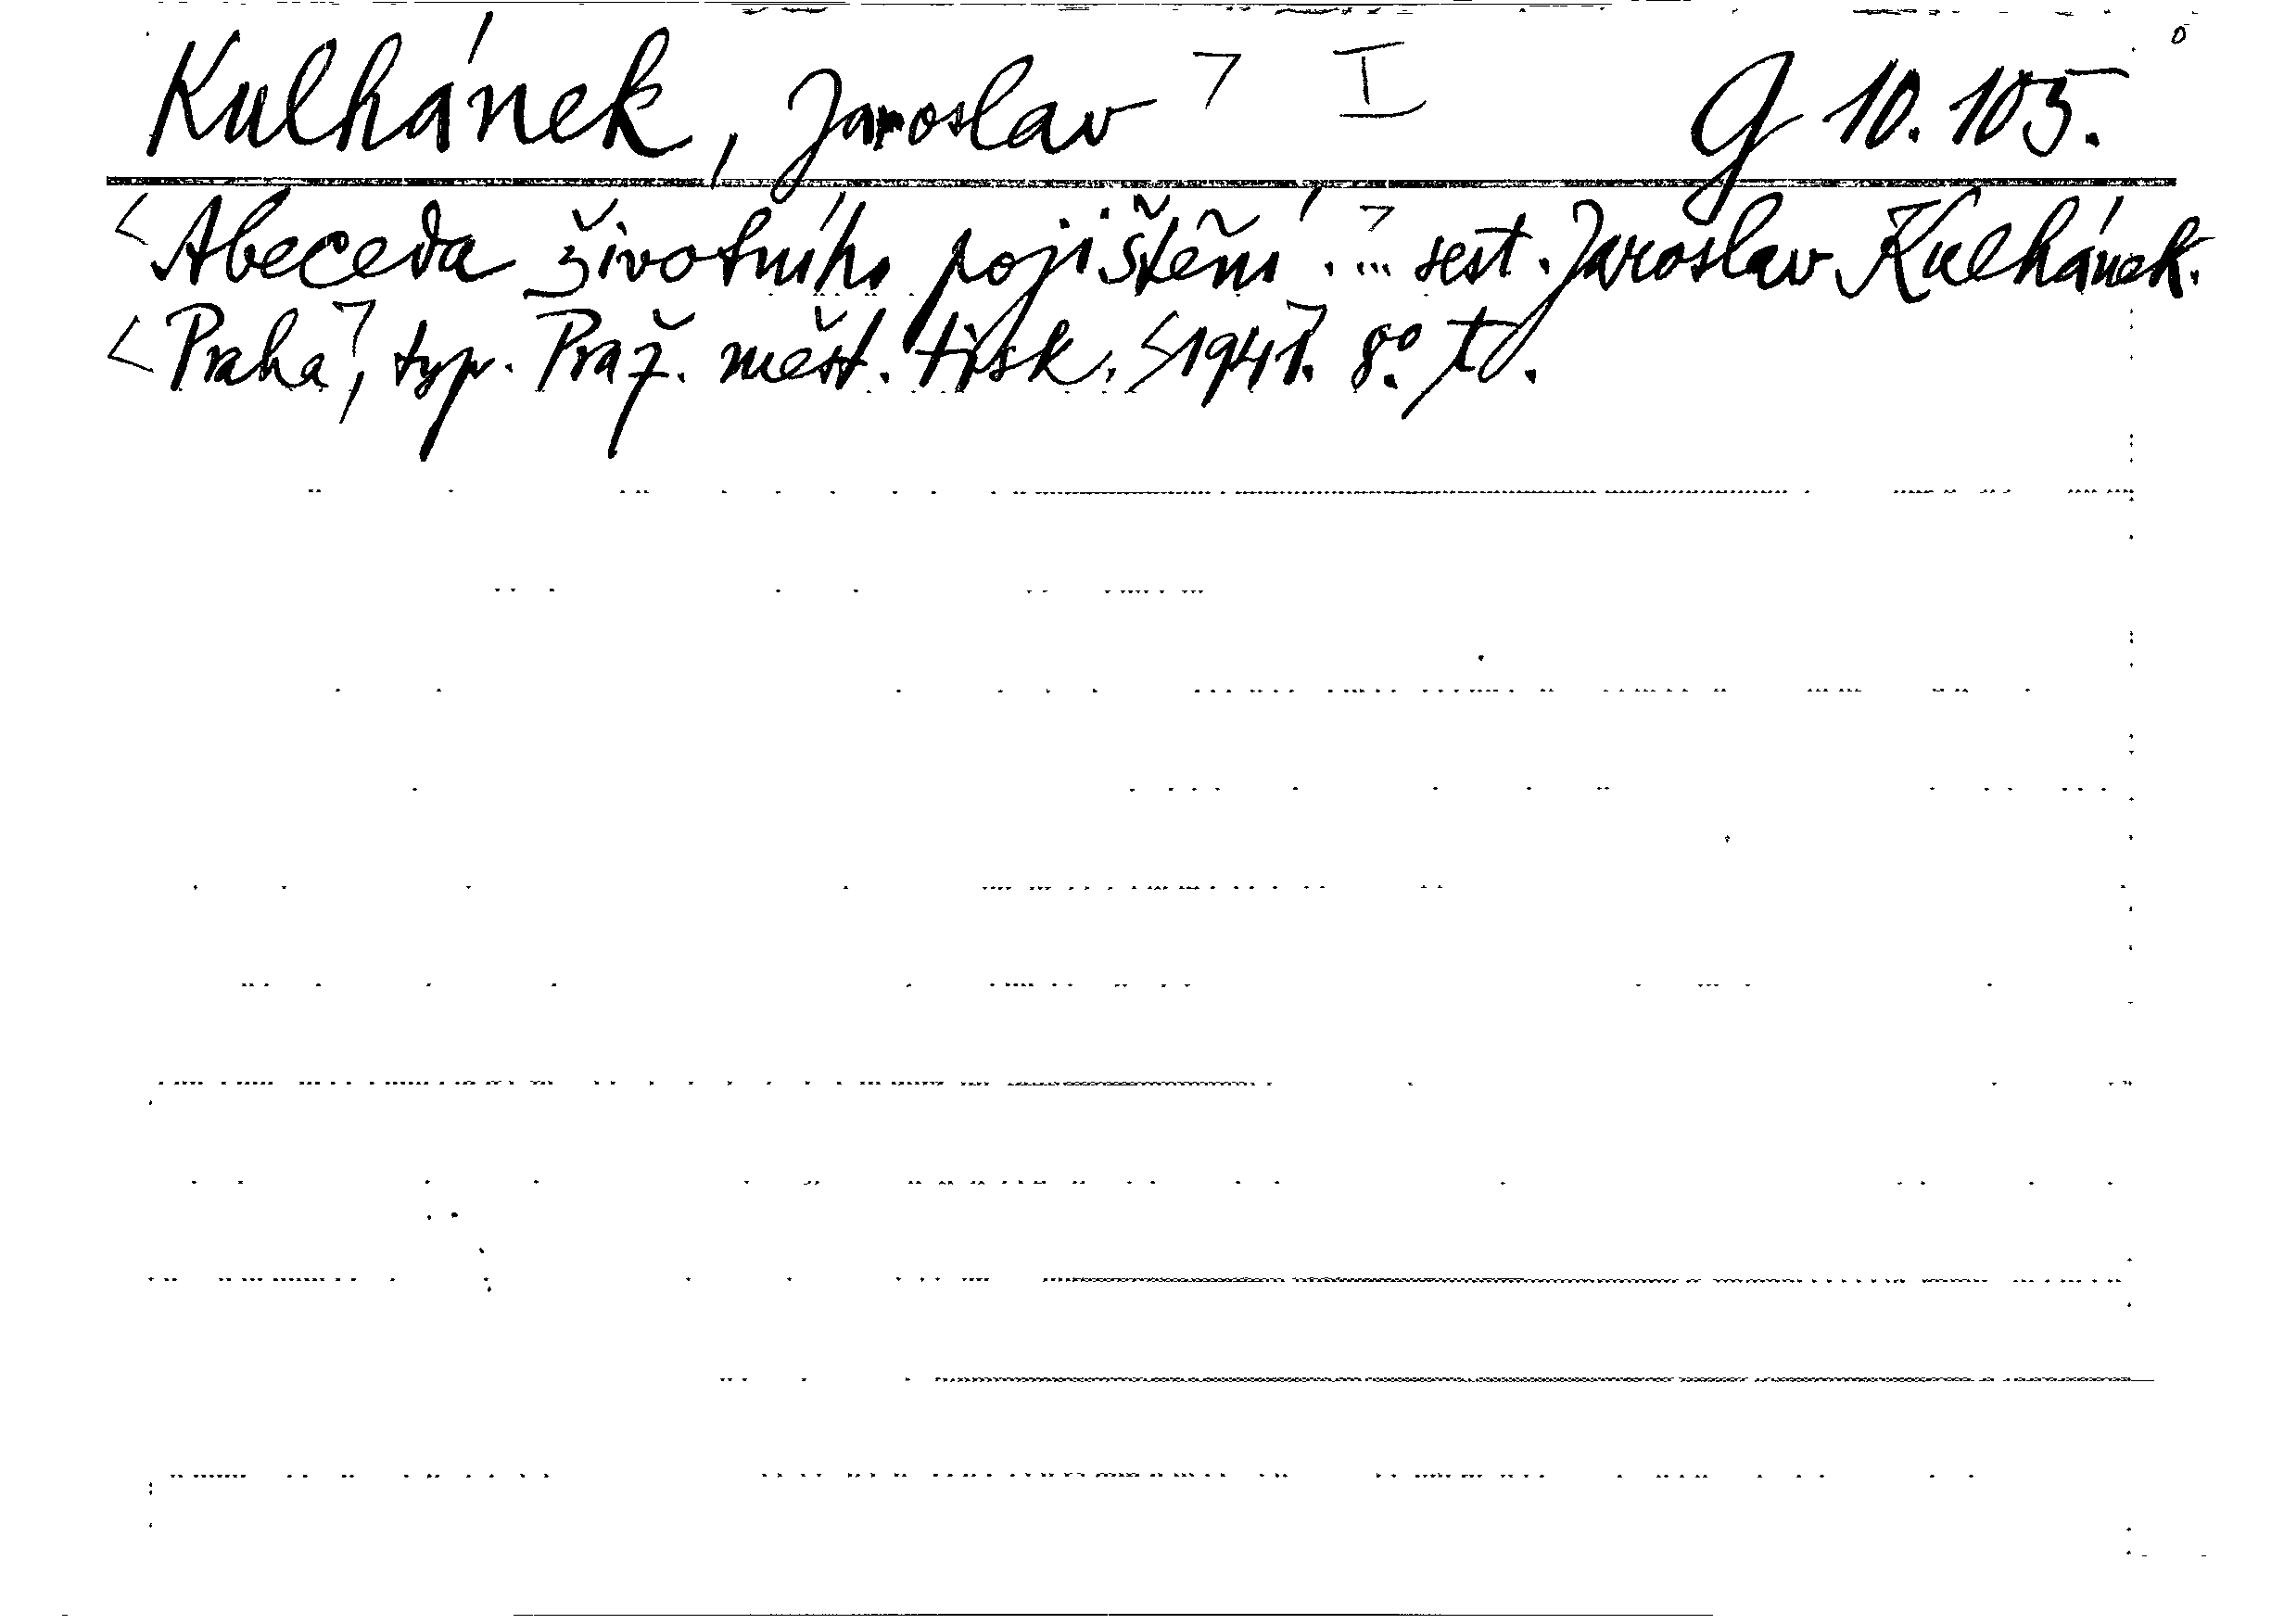 Kulhánek, Jaroslav ㄱ I G 10.105.
<Abeceda životního pojištění. ... sest. Jaroslav Kulhánek.
<Praha, typ. Praž. měst. tisk. <1941. 8°.